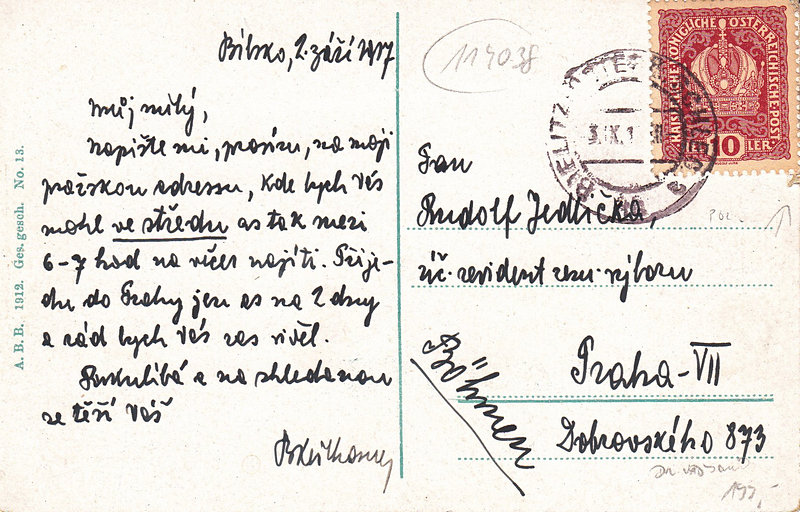 Bílsko, 2. září 1917
Můj milý,
napište mi, prosím, na moji
pražskou adressu, kde bych Vás
mohl ve středu as tak mezi
6-7 hod na večer najíti. Přije-
du do Prahy jen as na 2 dny
a rád bych Vás zas viděl.
a na shledanou
se těší Váš
A. B. B. 1912. Ges. gesch. No. 13.
114038
KAISERLICHE KÖNIGLICHE ÖSTERREICHISCHE POST
10 HELLER
BIELITZ
3.IX.1
Pan
Rudolf Jedlička,
úč. revident zem. výboru
Praha-VII
Dobrovského 873
Böhmen